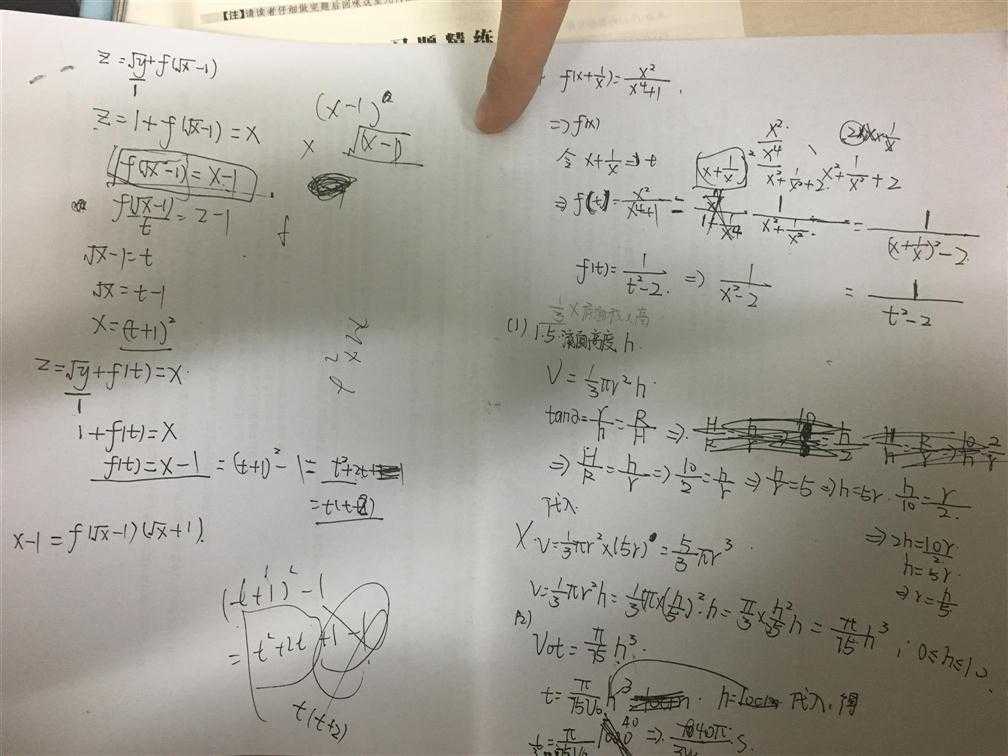 【注】请读者仔细做完题后回味这里
习题精练
z=√y+f(√x-1)
1
z=1+f(√x-1)=x
f(√x-1)=x-1
f(√x-1)=z-1
t
f
√x-1=t
√x=t-1
x=(t+1)²
z=√y+f(t)=x
1
1+f(t)=x
f(t)=x-1=(t+1)²-1=t²+2t
=t(t+2)
x-1=f(√x-1)(√x+1)
(t+1)²-1
=t²+2t+1-1
t(t+2)
(x-1)²
x √(x-1)
f(x+1/x)=x²/(x⁴+1)
⇒f(x)
令x+1/x=t
(x+1/x)² x²+1/x²+2
⇒f(t)=x²/(x⁴+1)= 1/(x²+1/x²) = 1/((x+1/x)²-2)
f(t)=1/(t²-2) ⇒ 1/(x²-2) = 1/(t²-2)
(1) 1.5.液面高度h.
V=1/3πr²h.
tanα=r/h=R/H⇒
⇒H/R=h/r⇒10/2=h/r⇒h/r=5⇒h=5r. h/10=r/2.
代入 ⇒2h=10r
X V=1/3πr²×(5r)=5/3πr³ h=5r.
⇒r=h/5
V=1/3πr²h=1/3π×(h/5)²·h=π/3×h²/25h=π/75h³; 0≤h≤10
(2)
V₀t=π/75h³.
t=π/75V₀h³ h=10cm 代入,得